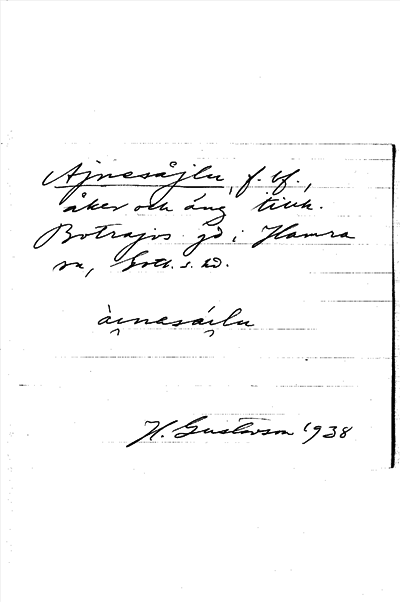 Ajnesåjlu, f. bf.,
åker och äng tillh.
Botrajvs gd i Hamra
sn, Gotl. s. hd.
àı̯nasáı̯lu
H. Gustavson 1938